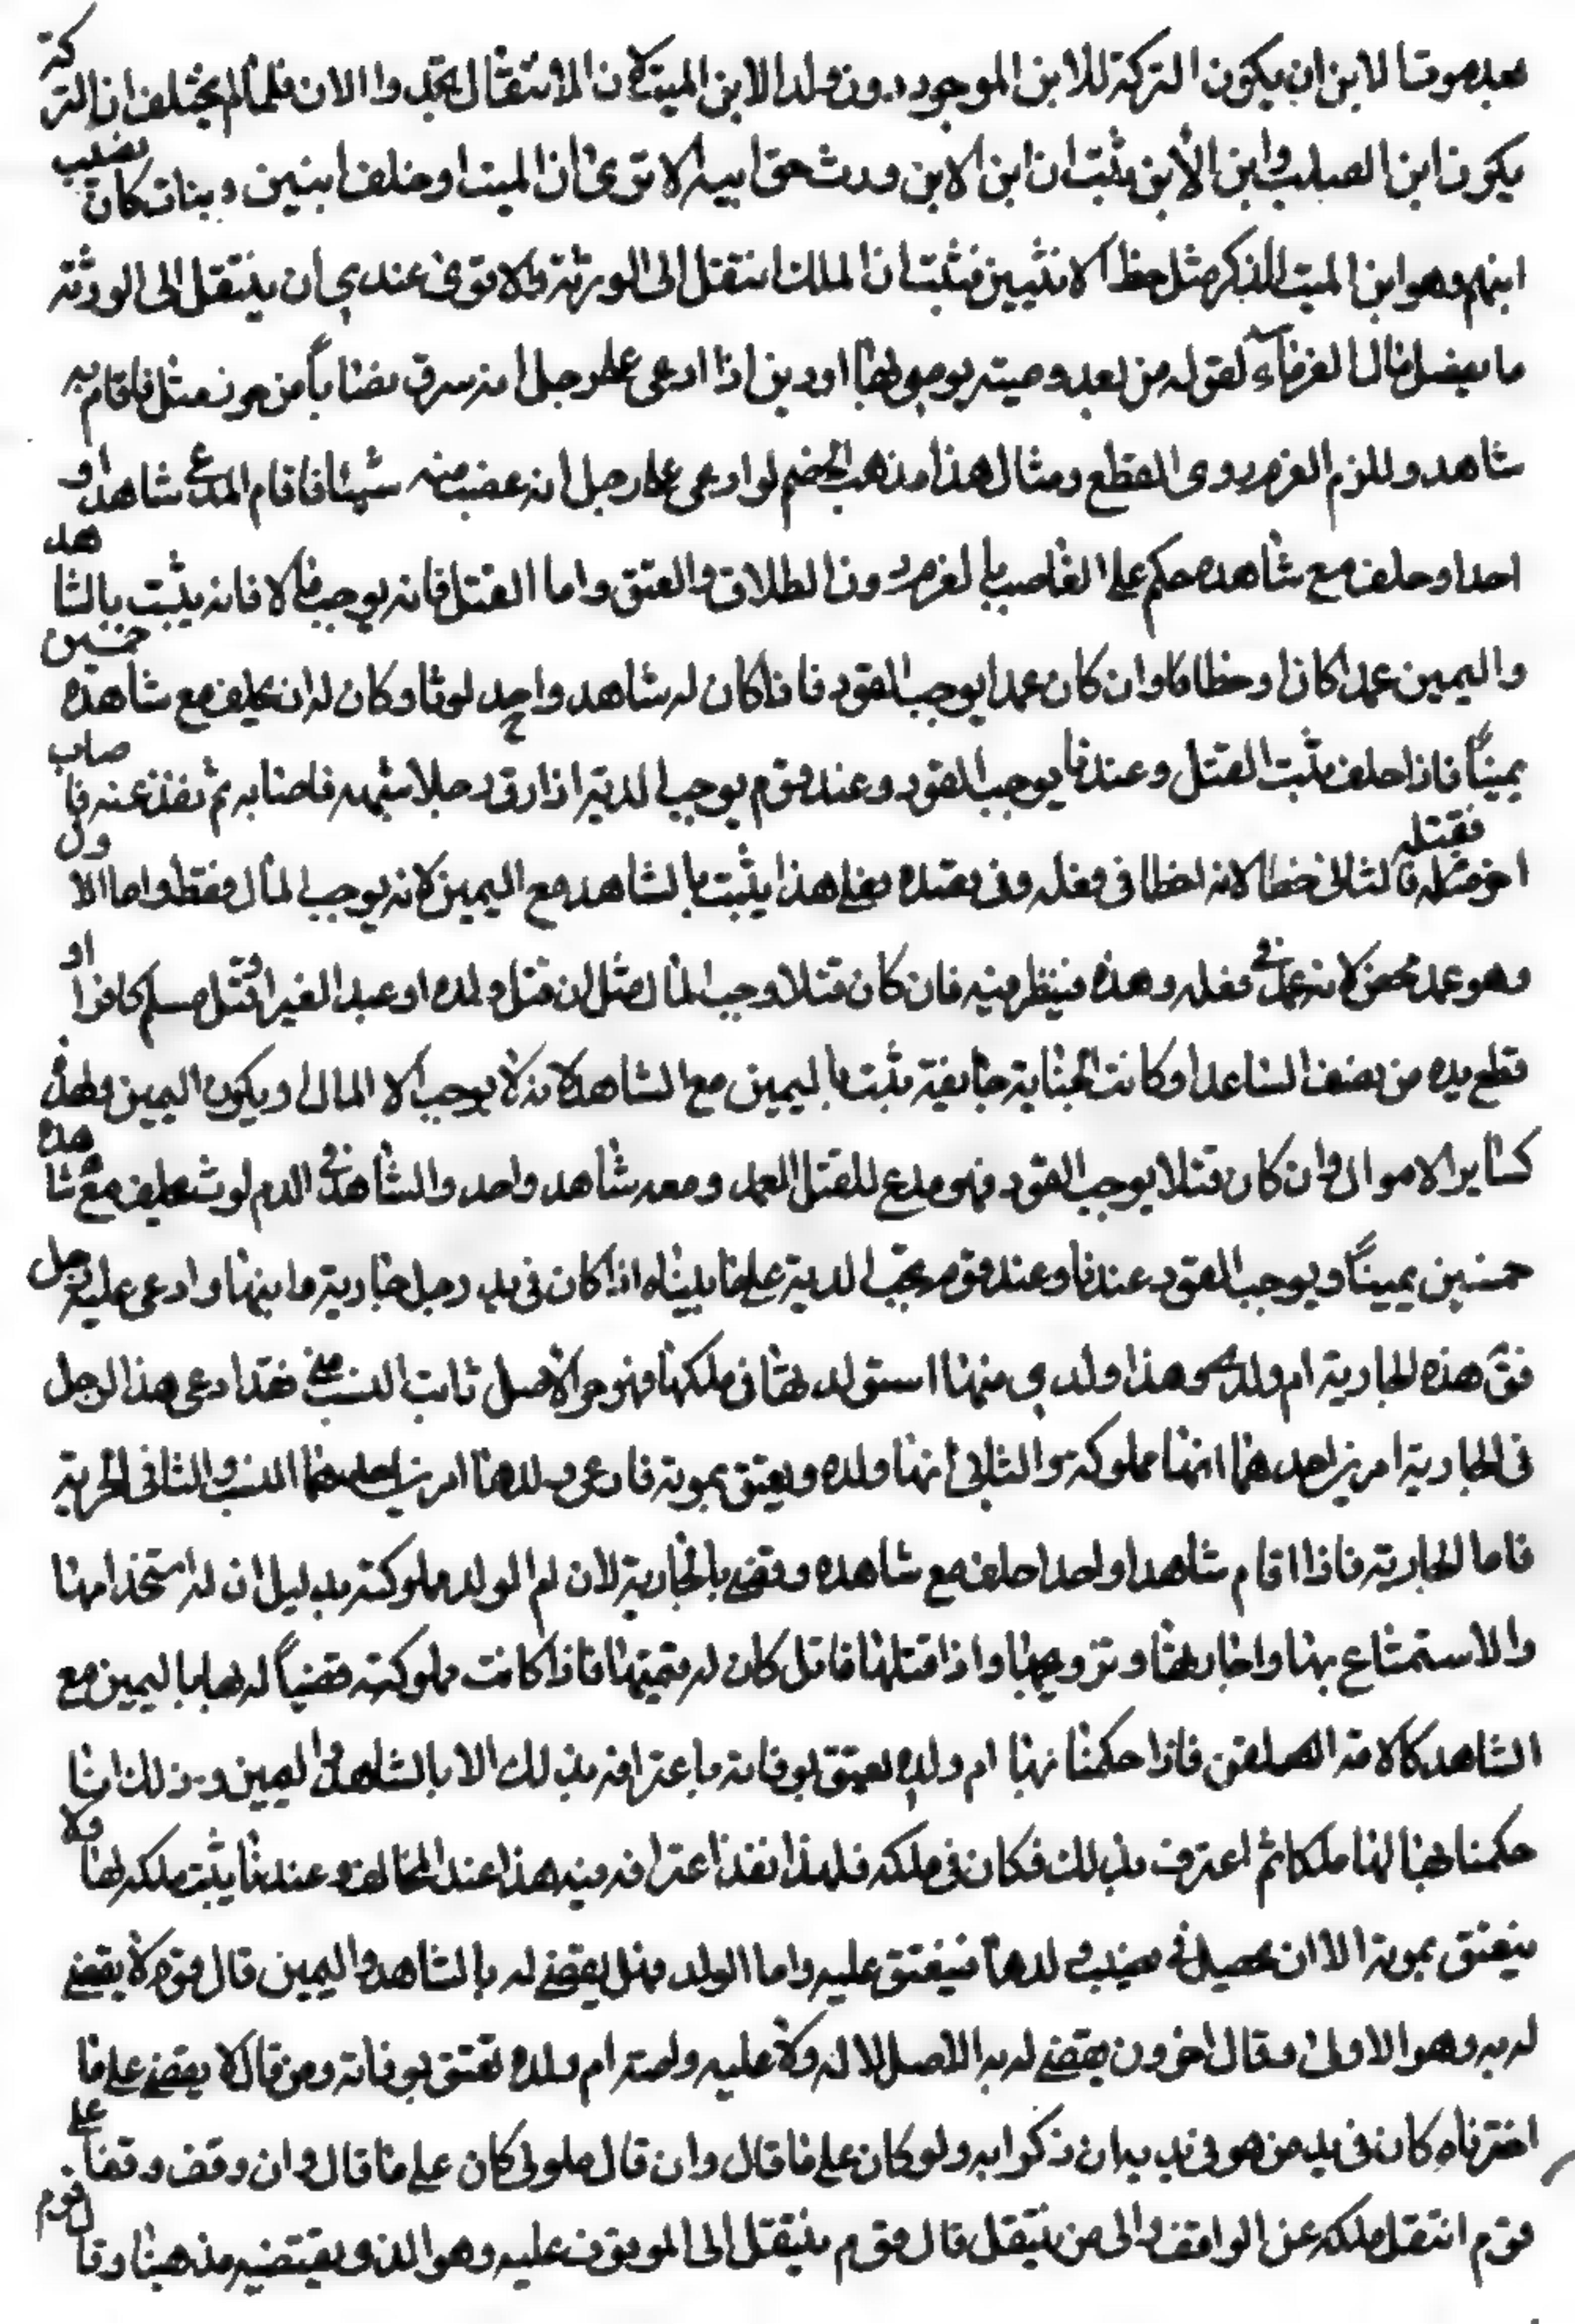 بعد موت الابن ان يكون التركة للابن الموجود دون ولد الابن الميت لان الانتقال تجدد الان فلما لم يختلف ان التركة
يكون ابن الصلب وابن الابن يثبت ان ابن الابن ورث حق ابيه الا ترى ان الميت لو خلف ابنين وبنات كان نصيب
ابنهم وهو ابن الميت للذكر مثل حظ الانثيين فثبت ان الملك انتقل الى الورثة والاقوى عندي ان ينتقل الى الورثة
ما يفضل مال الغرماء لقوله من بعد وصية يوصى بها او دين اذا ادعى على رجل انه سرق نصابا من حرز مثله فاقام به
شاهدا ولزم الغرم دون القطع ومثال هذا مذهب الخصم لو ادعى على رجل انه غصب منه شيئا فاقام المدعي شاهدا و
احدا وحلف مع شاهده حكم على الغاصب بالغرم دون الطلاق والعتق واما القتل فانه يوجب مالا فانه يثبت بالشاهد
واليمين عمدا كان او خطأ وان كان عمدا يوجب القود فاذا كان له شاهد واحد لوثا وكان له ان يحلف مع شاهده خمسين
يمينا فاذا حلف ثبت القتل وعندنا يوجب القود وعند قوم يوجب الدية اذا رمى رجلا بسهمه فاصابه ثم نفذ عنه فاصاب
اخر فقتله فالثاني خطأ لانه اخطأ في فعله وفي قصده فعلى هذا يثبت بالشاهد مع اليمين لانه يوجب المال فقط واما الاول
وهو عمد محض لانه عمد في فعله وهذه فينظر فيه فان كان قتلا اوجب المال مثل ان قتل ولده او عبد الغير او قتل مسلم كافرا او
قطع يده من نصف الساعد او كانت الجناية جايفة يثبت باليمين مع الشاهد لانه لا يوجب الا المال ويكون اليمين واحدة
كساير الاموال وان كان قتلا يوجب القود فهو مدع للقتل العمد ومعه شاهد واحد والشاهد في الدم لوث يحلف مع شاهده
خمسين يمينا ويوجب القود عندنا وعند قوم يجب الدية على ما بيناه اذا كان في يد رجل جارية وابنها وادعى عليه رجل
فق هذه الجارية ام ولدي وهذا ولدي منها استولدتها في ملكي فهو حر الاصل ثابت النسب مني فقد ادعى هذا الرجل
في الجارية امرين احدهما انها مملوكته والثاني انها ام ولده ويعتق بموته فادعى ولدها امرين احدهما النسب والثاني الحرية
فاما الجارية فاذا اقام شاهدا واحدا حلف مع شاهده وقضى بالجارية لان ام الولد مملوكته بدليل ان له استخدامها
والاستمتاع بها واجارتها وتزويجها واذا قتلها قاتل كان له قيمتها فاذا كانت مملوكته قضينا له بها باليمين مع
الشاهد كالامة المطلقة فاذا حكمنا بها ام ولده يعتق بوفاته باعترافه بذلك لا بالشاهد واليمين وذلك انا
حكمنا بها له ملكا ثم اعترف بذلك فكان في ملكه فلهذا نفذ اعترافه فيه هذا عند المخالف وعندنا يثبت ملكه لها ولا
ينعتق بموته الا ان يحصل في نصيب ولدها فينعتق عليه واما الولد فهل يقضى له بالشاهد واليمين قال قوم لا يقضى
له به وهو الاولى وقال اخرون يقضى له به الاصل لا له ولا عليه وامته ام ولده تعتق بوفاته ومن قال لا يقضى على ما
اخترناه كان في يد من هو في يديه ان ذكر انه ولده كان على ما قال وان قال مملوكي كان على ما قال وان وقف وقفا على
قوم انتقل ملكه عن الواقف والى من ينتقل قال قوم ينتقل الى الموقوف عليه وهو الذي يقتضيه مذهبنا وقال قوم